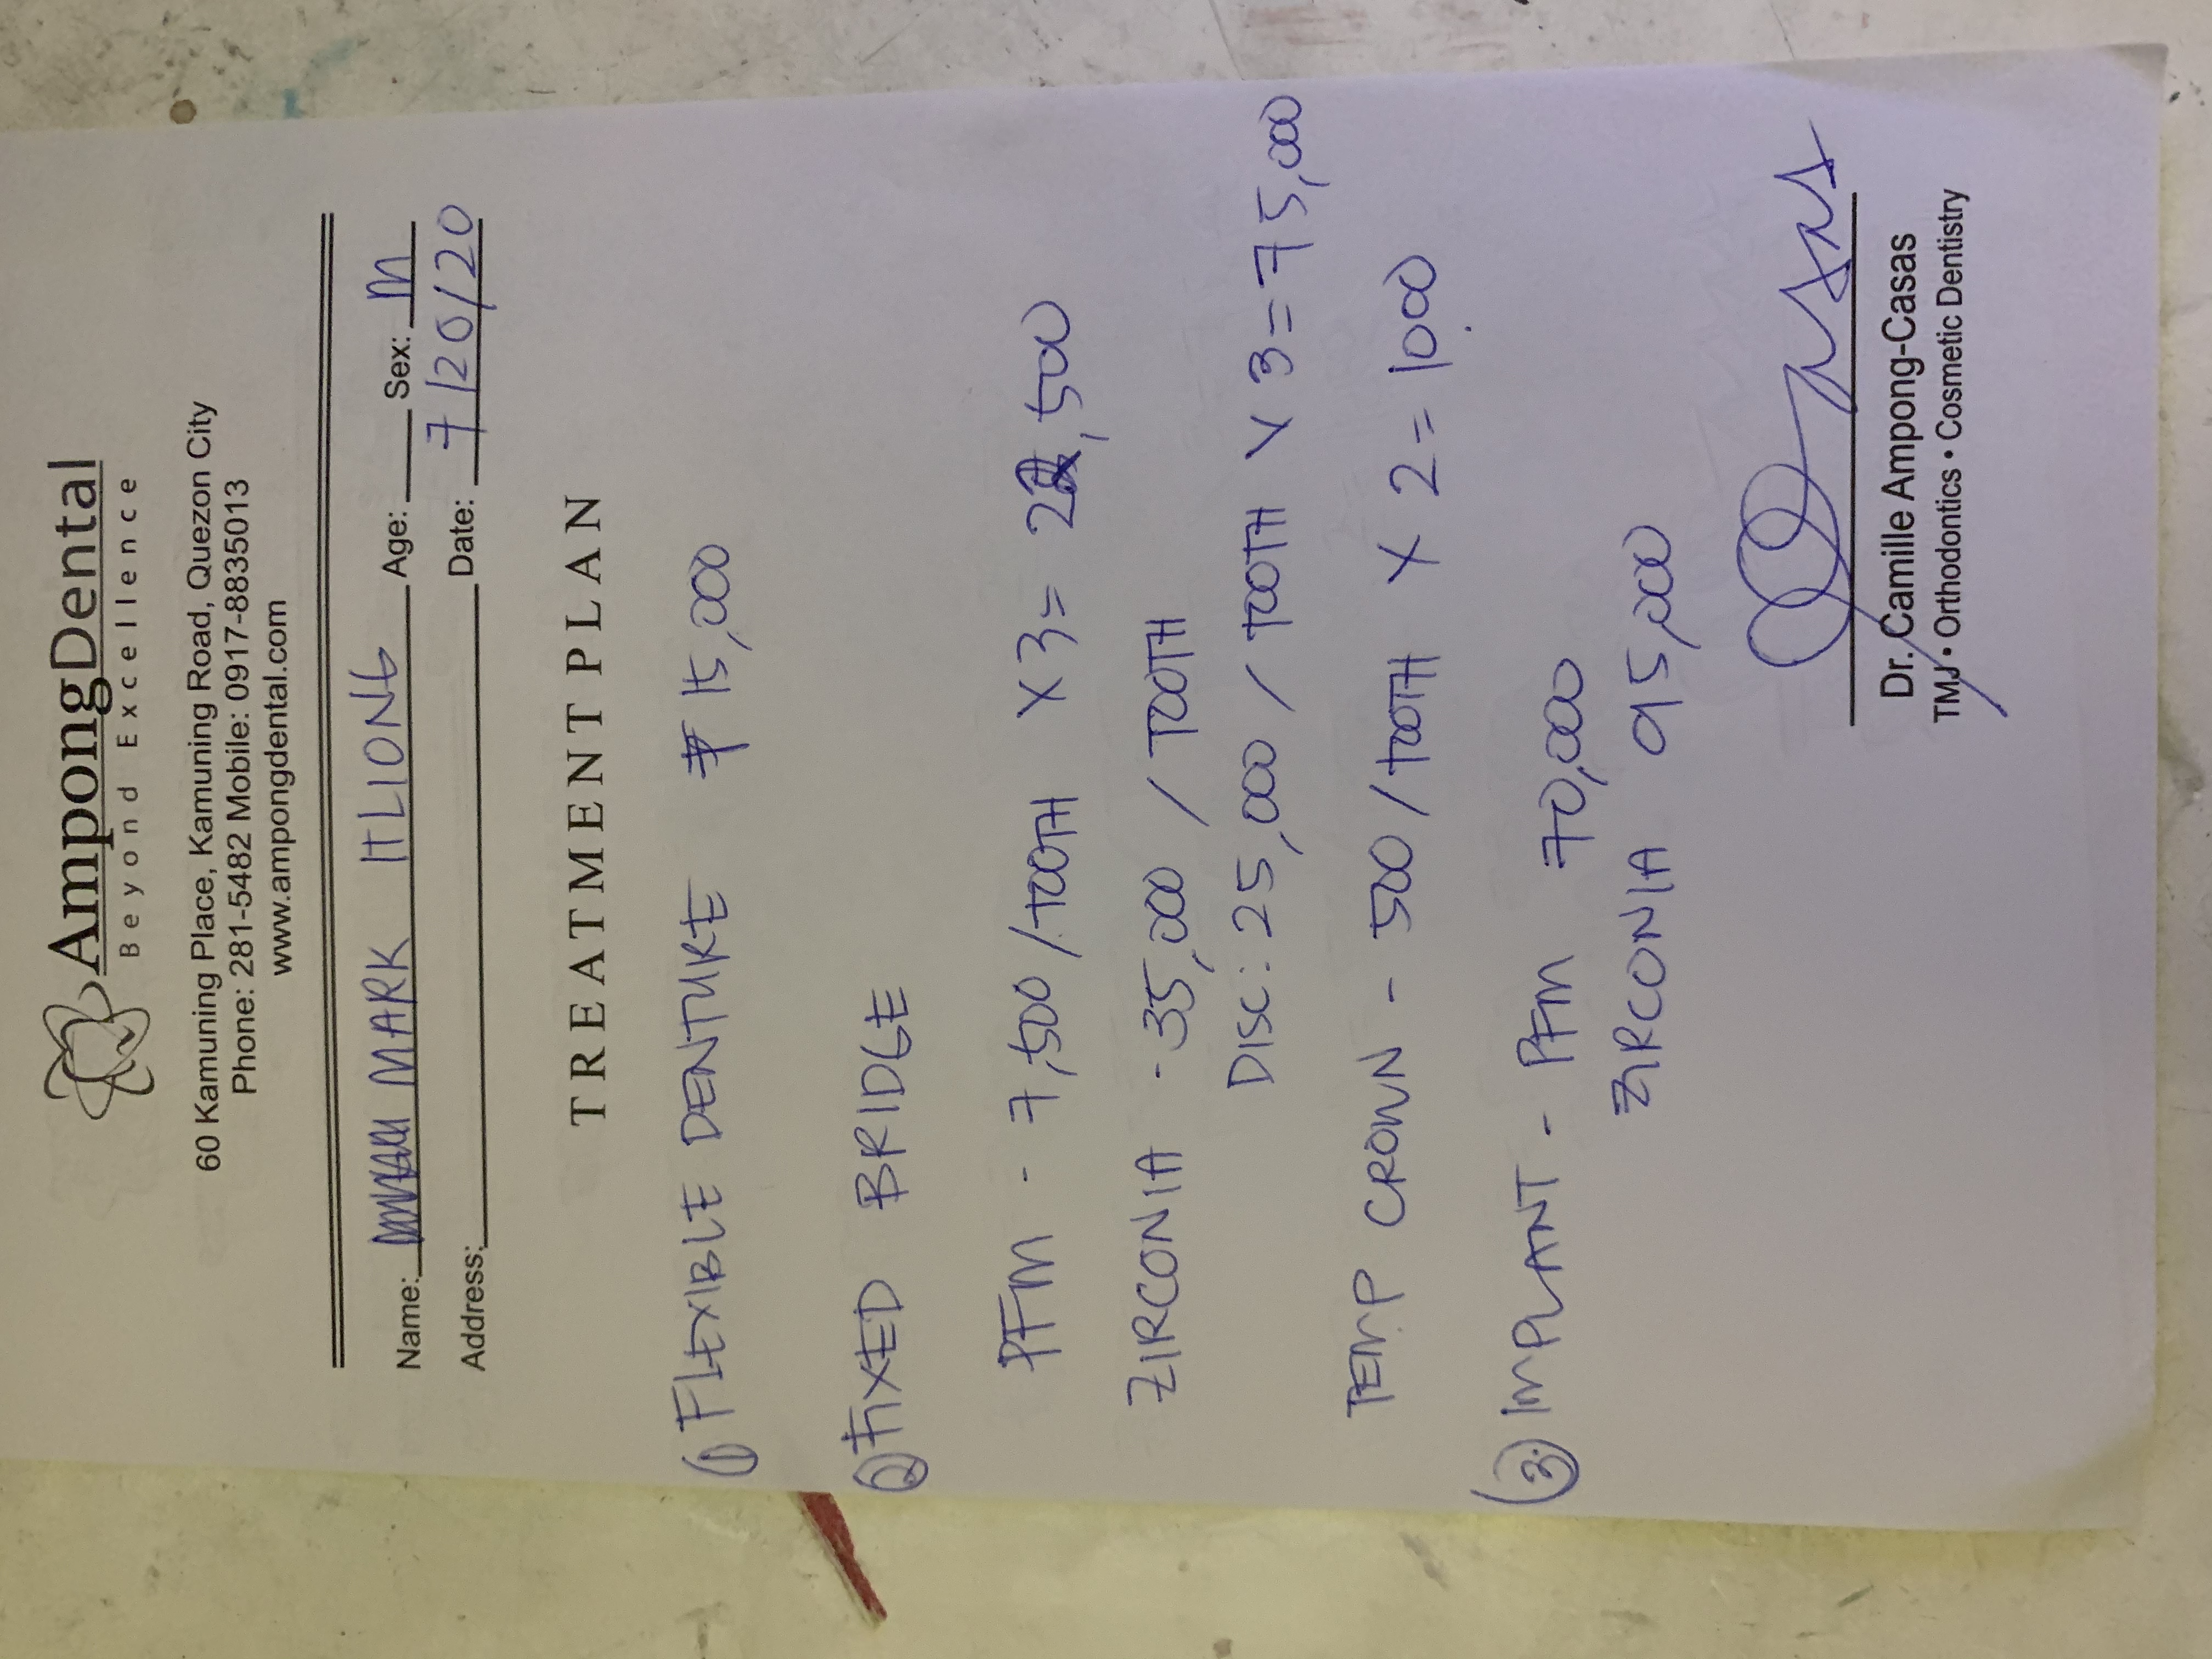 AmpongDental
Beyond Excellence
60 Kamuning Place, Kamuning Road, Quezon City
Phone: 281-5482 Mobile: 0917-8835013
www.ampongdental.com
Name: MARK ITLIONG Age: Sex: M
Address: Date: 7/20/20
TREATMENT PLAN
① FLEXIBLE DENTURE ₱ 15,000
② FIXED BRIDGE
PFM - 7,500 / TOOTH X 3 = 22,500
ZIRCONIA - 35,000 / TOOTH
DISC: 25,000 / TOOTH X 3 = 75,000
TEMP CROWN - 500 / TOOTH X 2 = 1000
③ IMPLANT - PFM 70,000
ZIRCONIA 95,000
Casas
Dr. Camille Ampong-Casas
TMJ • Orthodontics • Cosmetic Dentistry